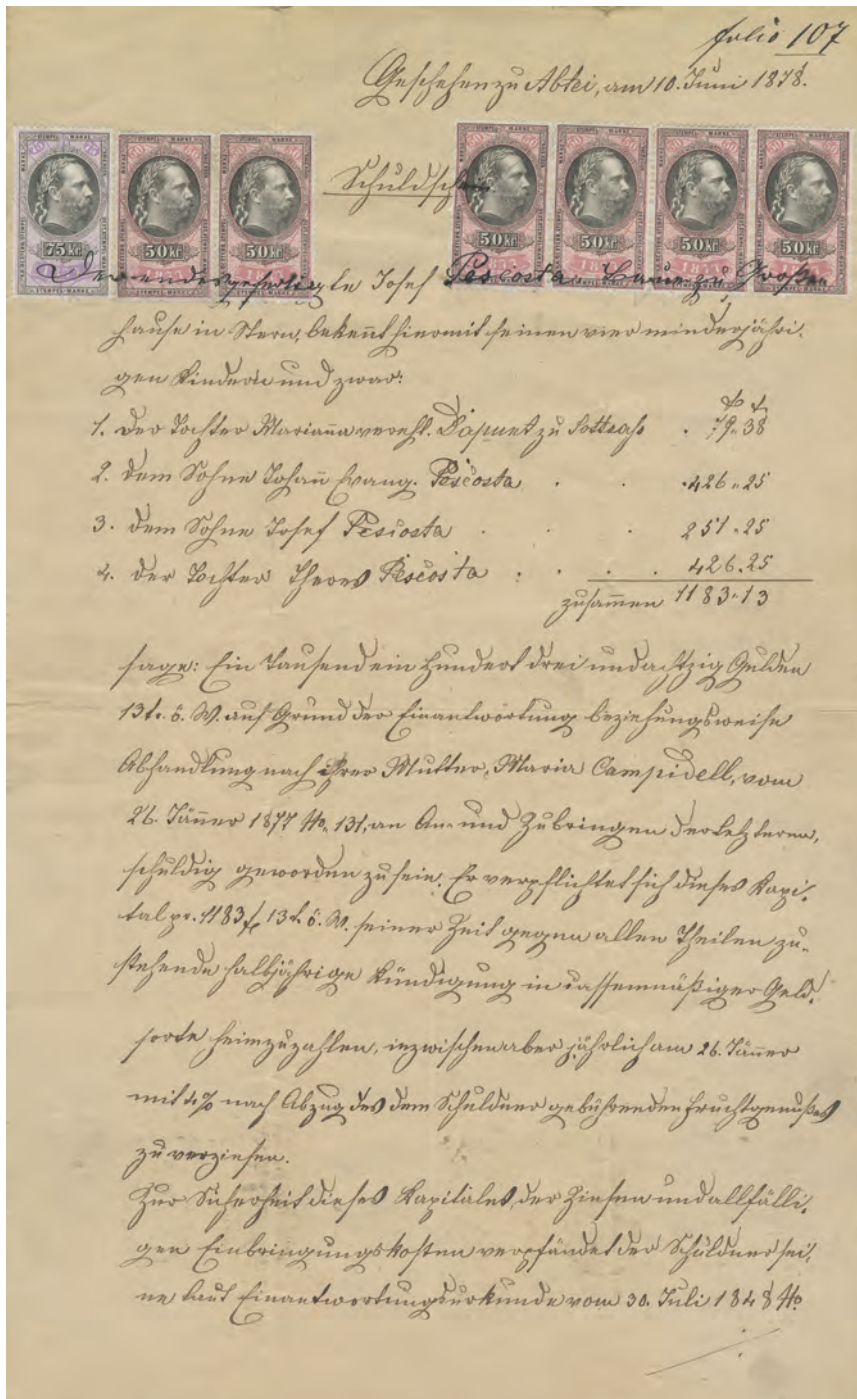 folio 107
Geschehen zu Abtei, am 10. Juni 1878.
Schuldschein
75 Kr 50 Kr 50 Kr 50 Kr 50 Kr 50 Kr 50 Kr
Der endesgefertigte Josef Pescosta, Bauer zu Großen
hause in Stern, bekennt hiermit seinen vier minderjähri-
gen Kindern und zwar:
f. k.
1. Der Tochter Marianna verehl. Dapunt zu Sottsass . 79.38
2. Dem Sohne Johann Evang. Pescosta . . . 426.25
3. Dem Sohne Josef Pescosta . . . 251.25
4. Der Tochter Theres Pescosta : . . . 426.25
zusammen 1183.13
sage: Ein Tausend ein Hundert drei und achtzig Gulden
13 k. ö. W. auf Grund der Einantwortung beziehungsweise
Abhandlung nach ihrer Mutter, Maria Campidell, vom
26. Jänner 1877 No. 131, an An- und Zubringen der letzteren,
schuldig geworden zu sein. Er verpflichtet sich dieses Kapi-
tal pr. 1183 f 13 k. ö. W. seiner Zeit gegen allen Theilen zu-
stehende halbjährige Kündigung in cassemäßiger Geld-
sorte heimzuzahlen, inzwischen aber jährlich am 26. Jänner
mit 4% nach Abzug des dem Schuldner gebührenden Fruchtgenußes
zu verzinsen.
Zur Sicherheit dieses Kapitales, der Zinsen und allfälli-
gen Einbringungskosten verpfändet der Schuldner sei-
ne laut Einantwortungsurkunde vom 30. Juli 1848 No